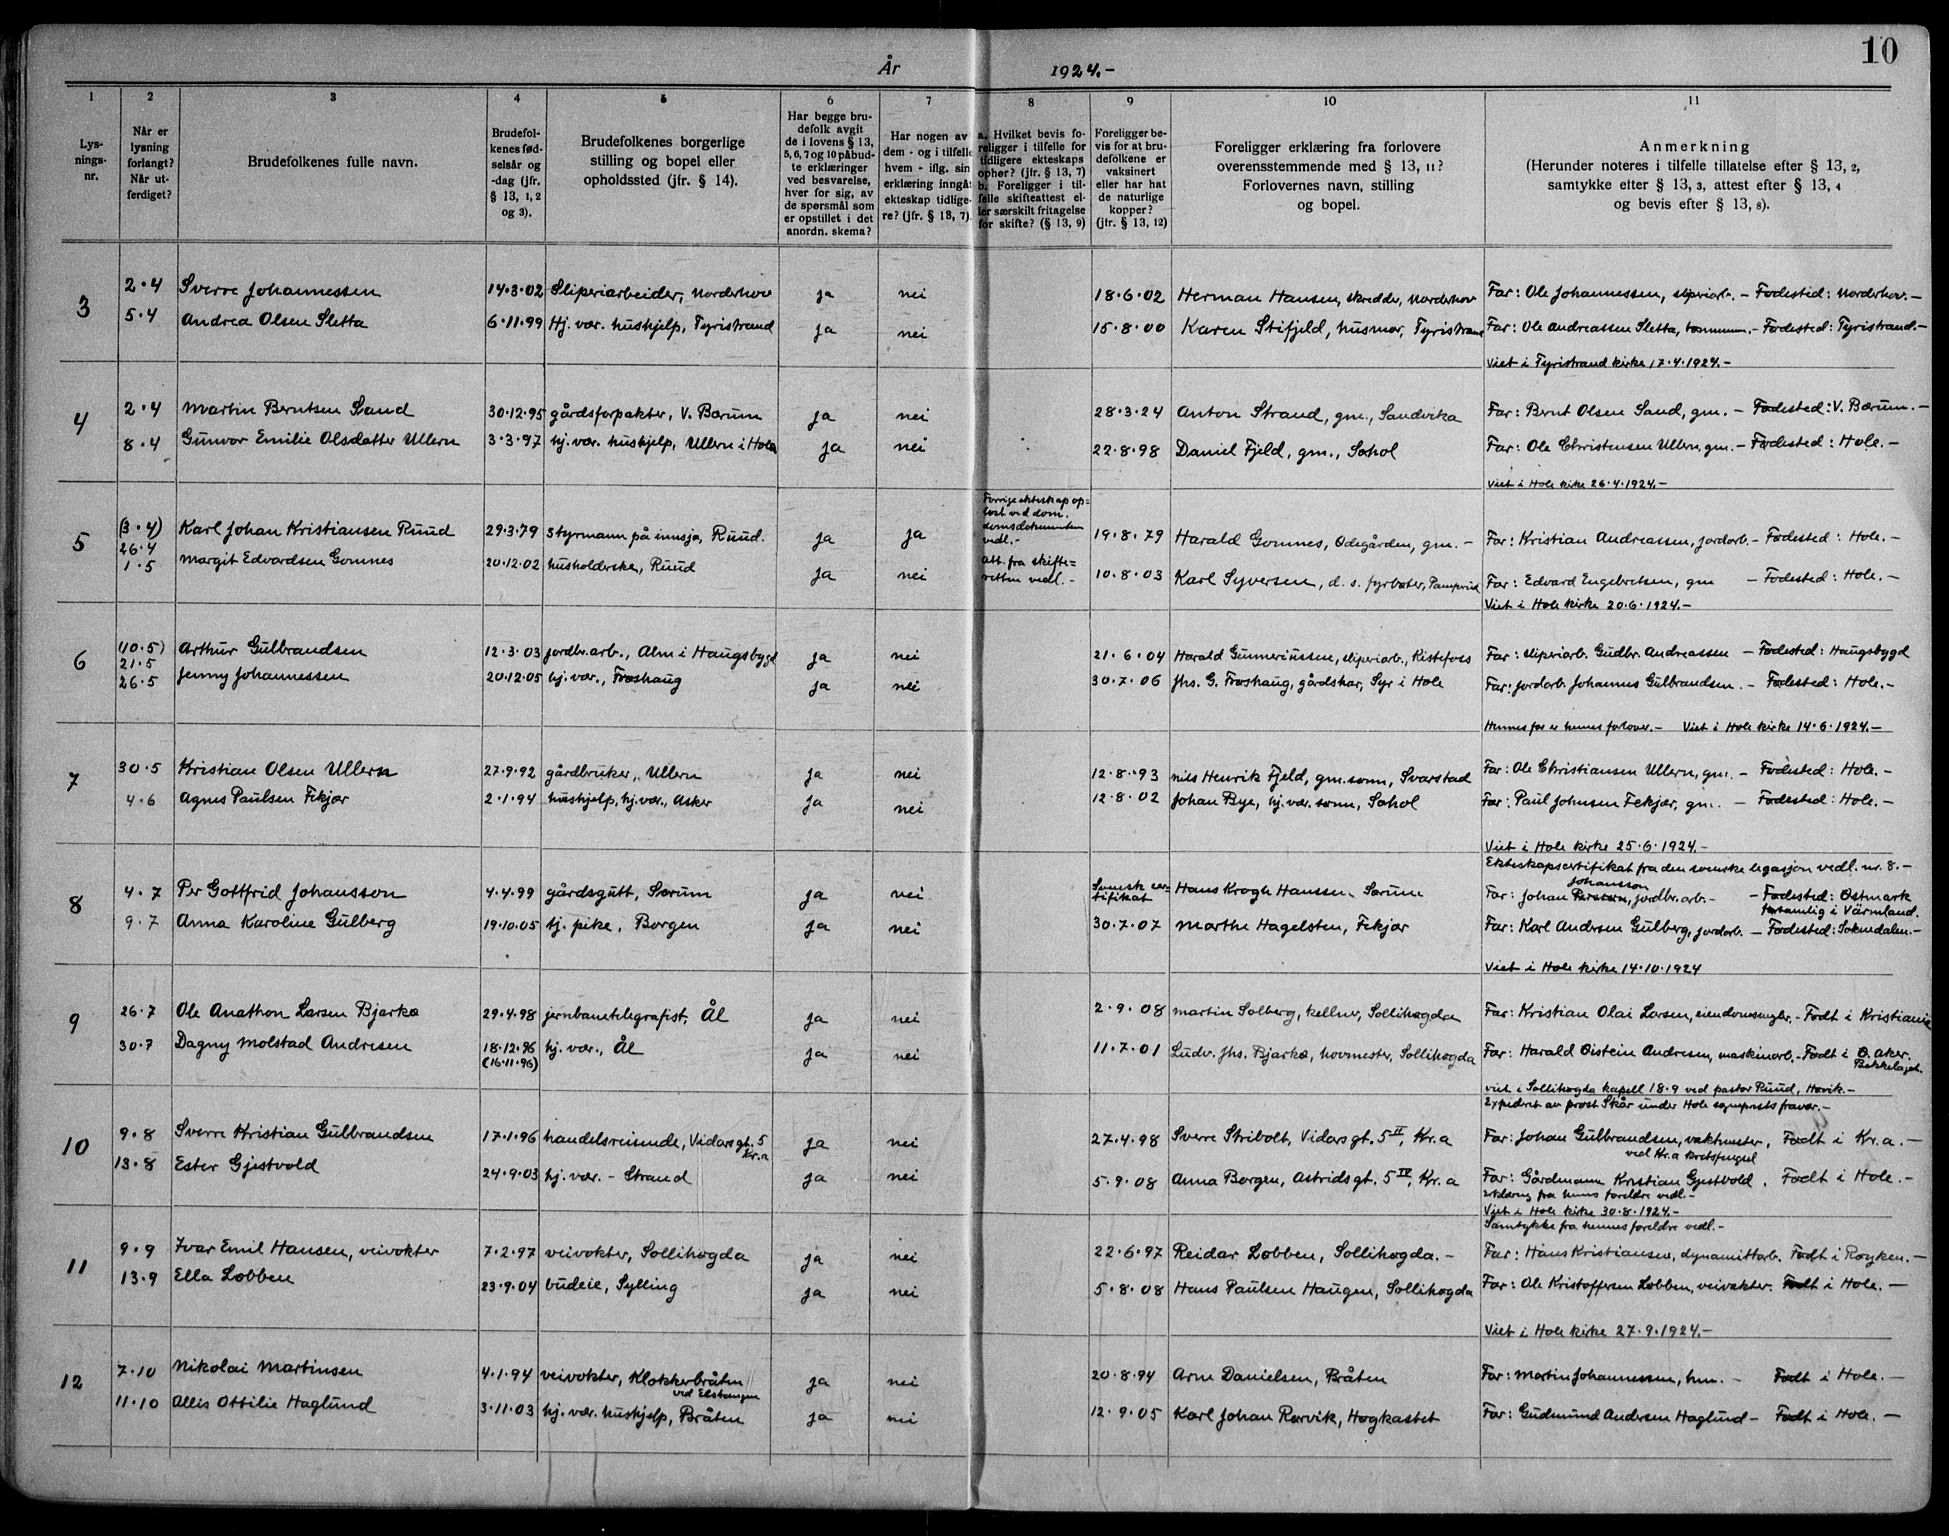 10
År 1924.-
1 2 3 4 5 6 7 8 9 10 11
Lysnings-nr.
Når er lysning forlangt? Når utferdiget?
Brudefolkenes fulle navn.
Brudefolkenes fødselsår og -dag (jfr. § 13, 1, 2 og 3).
Brudefolkenes borgerlige stilling og bopel eller opholdssted (jfr. § 14).
Har begge brudefolk avgit de i lovens § 13, 5, 6, 7 og 10 påbudte erklæringer ved besvarelse, hver for sig, av de spørsmål som er opstillet i det anordn. skema?
Har nogen av dem - og i tilfelle hvem - iflg. sin erklæring inngåt ekteskap tidligere? (jfr. § 18, 7).
a. Hvilket bevis foreligger i tilfelle for tidligere ekteskaps opher? (jfr. § 13, 7) b. Foreligger i tilfelle skifteattest eller særskilt fritagelse for skifte? (§ 13, 9)
Foreligger bevis for at brudefolkene er vaksinert eller har hat de naturlige kopper? (jfr. § 13, 12)
Foreligger erklæring fra forlovere overensstemmende med § 13, 11? Forlovernes navn, stilling og bopel.
Anmerkning (Herunder noteres i tilfelle tillatelse efter § 13, 2, samtykke efter § 13, 3, attest efter § 13, 4 og bevis efter § 13, 8).
3 2·4 Sverre Johannessen 14·3·02 Sliperiarbeider, Norderhov ja nei 18·6·02 Herman Hansen, skredder, Norderhov Far: Ole Johannessen, sliperiarb. - Fødested: Norderhov.-
5·4 Andrea Olsen Sletta 6·11·99 Hj. vær. hushjelp, Tyristrand ja nei 15·8·00 Karen Stifjeld, husmor, Tyristrand Far: Ole Andreassen Sletta, tømmerm. - Fødested: Tyristrand.-
Viet i Tyristrand kirke 17·4·1924.-
4 2·4 Martin Berntsen Sand 30·12·95 gårdsforpakter, V. Bærum ja nei 28·3·24 Anton Strand, gm., Sandvika Far: Bernt Olsen Sand, gm. - Fødested: V. Bærum.-
8·4 Gunvor Emilie Olsdatter Ullern 3·3·97 hj. vær. hushjelp, Ullern i Hole ja nei 22·8·98 Daniel Fjeld, gm., Søhol Far: Ole Christensen Ullern, gm. - Fødested: Hole.-
Viet i Hole kirke 26·4·1924.-
5 (3·4) 26·4 Karl Johan Kristiansen Ruud 29·3·79 styrmann på innsjø, Ruud. ja ja Forrige ekteskap opløst ved dom. domsdokumenten vedl.- 19·8·79 Harald Gomnes, Ødegården, gm. - Far: Kristian Andreassen, jordarb. - Fødested: Hole.-
1·5 Margit Edvardsen Gomnes 20·12·02 husholderske, Ruud ja nei att. fra skifteretten vedl.- 10·8·03 Karl Syversen, d. s. fyrbøter, Pamperud Far: Edvard Engebretsen, gm - Fødested: Hole.-
Viet i Hole kirke 20·6·1924.-
6 (10·5) 21·5 Arthur Gulbrandsen 12·3·03 jordbr. arb., Alm i Haugsbygd ja nei 21·6·04 Harald Gunneriussen, sliperiarb., Ristefoss Far: sliperiarb. Gudbr. Andreassen - Fødested: Haugsbygd
26·5 Jenny Johannessen 20·12·05 hj. vær., Frøshaug ja nei 30·7·06 Jhs. G. Frøshaug, gårdskar, Syr i Hole Far: jordarb. Johannes Gulbrandsen. - Fødested: Hole.-
Hennes far er hennes forlover. - Viet i Hole kirke 14·6·1924.-
7 30·5 Kristian Olsen Ullern 27·9·92 gårdbruker, Ullern ja nei 12·8·93 Nils Henrik Fjeld, gm. sønn, Svarstad Far: Ole Christiansen Ullern, gm. - Fødested: Hole.-
4·6 Agnes Paulsen Fekjær 2·1·94 hushjelp, hj. vær., Asker ja nei 12·8·02 Johan Bye, hj. vær. sønn, Søhol Far: Paul Johnsen Fekjær, gm. - Fødested: Hole.-
Viet i Hole kirke 25·6·1924.-
Ekteskapscertifikat fra den svenske legasjon vedl. nr. 8.-
8 4·7 Per Gottfrid Johansson 4·4·99 gårdsgutt, Sørum ja nei Svensk certifikat Hans Krogh Hanssen, Sørum Far: Johan Persson Johansson, jordbr. arb. - Fødested: Östmark församlig i Värmland.
9·7 Anna Karoline Gulberg 19·10·05 hj. pike, Borgen ja nei 30·7·07 Marthe Hagelsten, Fekjær Far: Karl Andersen Gulberg, jordarb. - Fødested: Soknedalen.-
Viet i Hole kirke 14·10·1924
9 26·7 Ole Anathon Larsen Bjørkø 29·4·98 jernbanetelegrafist, Ål ja nei 2·9·08 Martin Solberg, kellner, Sollihøgda Far: Kristian Olai Larsen, eiendomsmegler. - Født i Kristiania
30·7 Dagny Molstad Andresen 18·12·96 (16·11·96) hj. vær., Ål ja nei 11·7·01 Ludv. Jhs. Bjørkø, hovmester, Sollihøgda Far: Harald Øistein Andresen, maskinarb. - Født i Ø. Aker. Bekkelaget.
viet i Sollihøgda kapell 18·9 ved pastor Ruud, Høvik.-
Expederet av prost Skår under Hole sogneprests fravær.-
10 9·8 Sverre Kristian Gulbrandsen 17·1·96 handelsreisende, Vidarsgt. 5 Kr.a ja nei 27·4·98 Sverre Stribolt, Vidarsgt. 5 II, Kr.a Far: Johan Gulbrandsen, vaktmester, ved Kr.a kretsfengsel Født i Kr.a.-
13·8 Ester Gjestvold 24·9·03 hj. vær. - Strand ja nei 5·9·08 Anna Borgen, Astridsgt. 5 IV, Kr.a Far: Gårdmann Kristian Gjestvold. Født i Hole.-
erklæring fra hennes foreldre vedl.-
Viet i Hole kirke 30·8·1924.-
Samtykke fra hennes foreldre vedl.-
11 9·9 Ivar Emil Hansen, veivokter 7·2·97 veivokter, Sollihøgda ja nei 22·6·97 Reidar Løbben, Sollihøgda.- Far: Hans Kristiansen, dynamittarb. Født i Røyken.-
13·9 Ella Løbben 23·9·04 budeie, Sylling ja nei 5·8·08 Hans Paulsen Haugen, Sollihøgda Far: Ole Kristoffersen Løbben, veivokter. Født i Hole.-
Viet i Hole kirke 27·9·1924.-
12 7·10 Nikolai Martinsen 4·1·94 veivokter, Klokkerbråten ved Elstangen ja nei 20·8·94 Arne Danielsen, Bråten Far: Martin Johannessen, hm. - Født i Hole.-
11·10 Allis Ottilie Haglund 3·11·03 hj. vær. hushjelp, Bråten ja nei 12·9·05 Karl Johan Rørvik, Høgkastet Far: Gudmund Andersen Haglund - Født i Hole.-